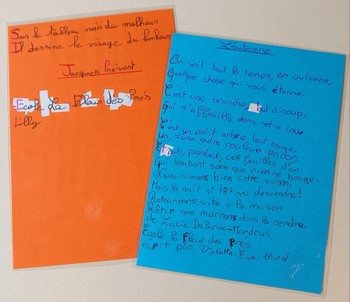 Sur le tableau noir du malheur
Il dessine le visage du bonheur
Jacques Prévert
École La Fleur des Prés
Lilly
L'automne
On voit tout le temps, en automne,
Quelque chose qui vous étonne,
C'est une branche tout à coup,
Qui s'effeuille dans votre cou.
C'est un petit arbre tout rouge,
Un, d'une autre couleur encor,
Et puis, partout, ces feuilles d'or
Qui tombent sans que rien ne bouge.
Nous aimons bien cette saison,
Mais la nuit si tôt va descendre!
Retournons vite à la maison
Rôtir nos marrons dans la cendre.
de Lucie Delarue-Mardrus
École la fleur des Prés
écrit par Violette